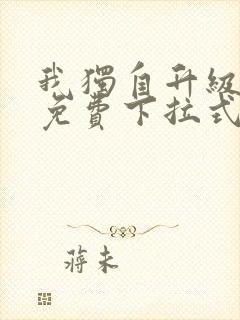 我獨自升級
免費下拉式
蔣未